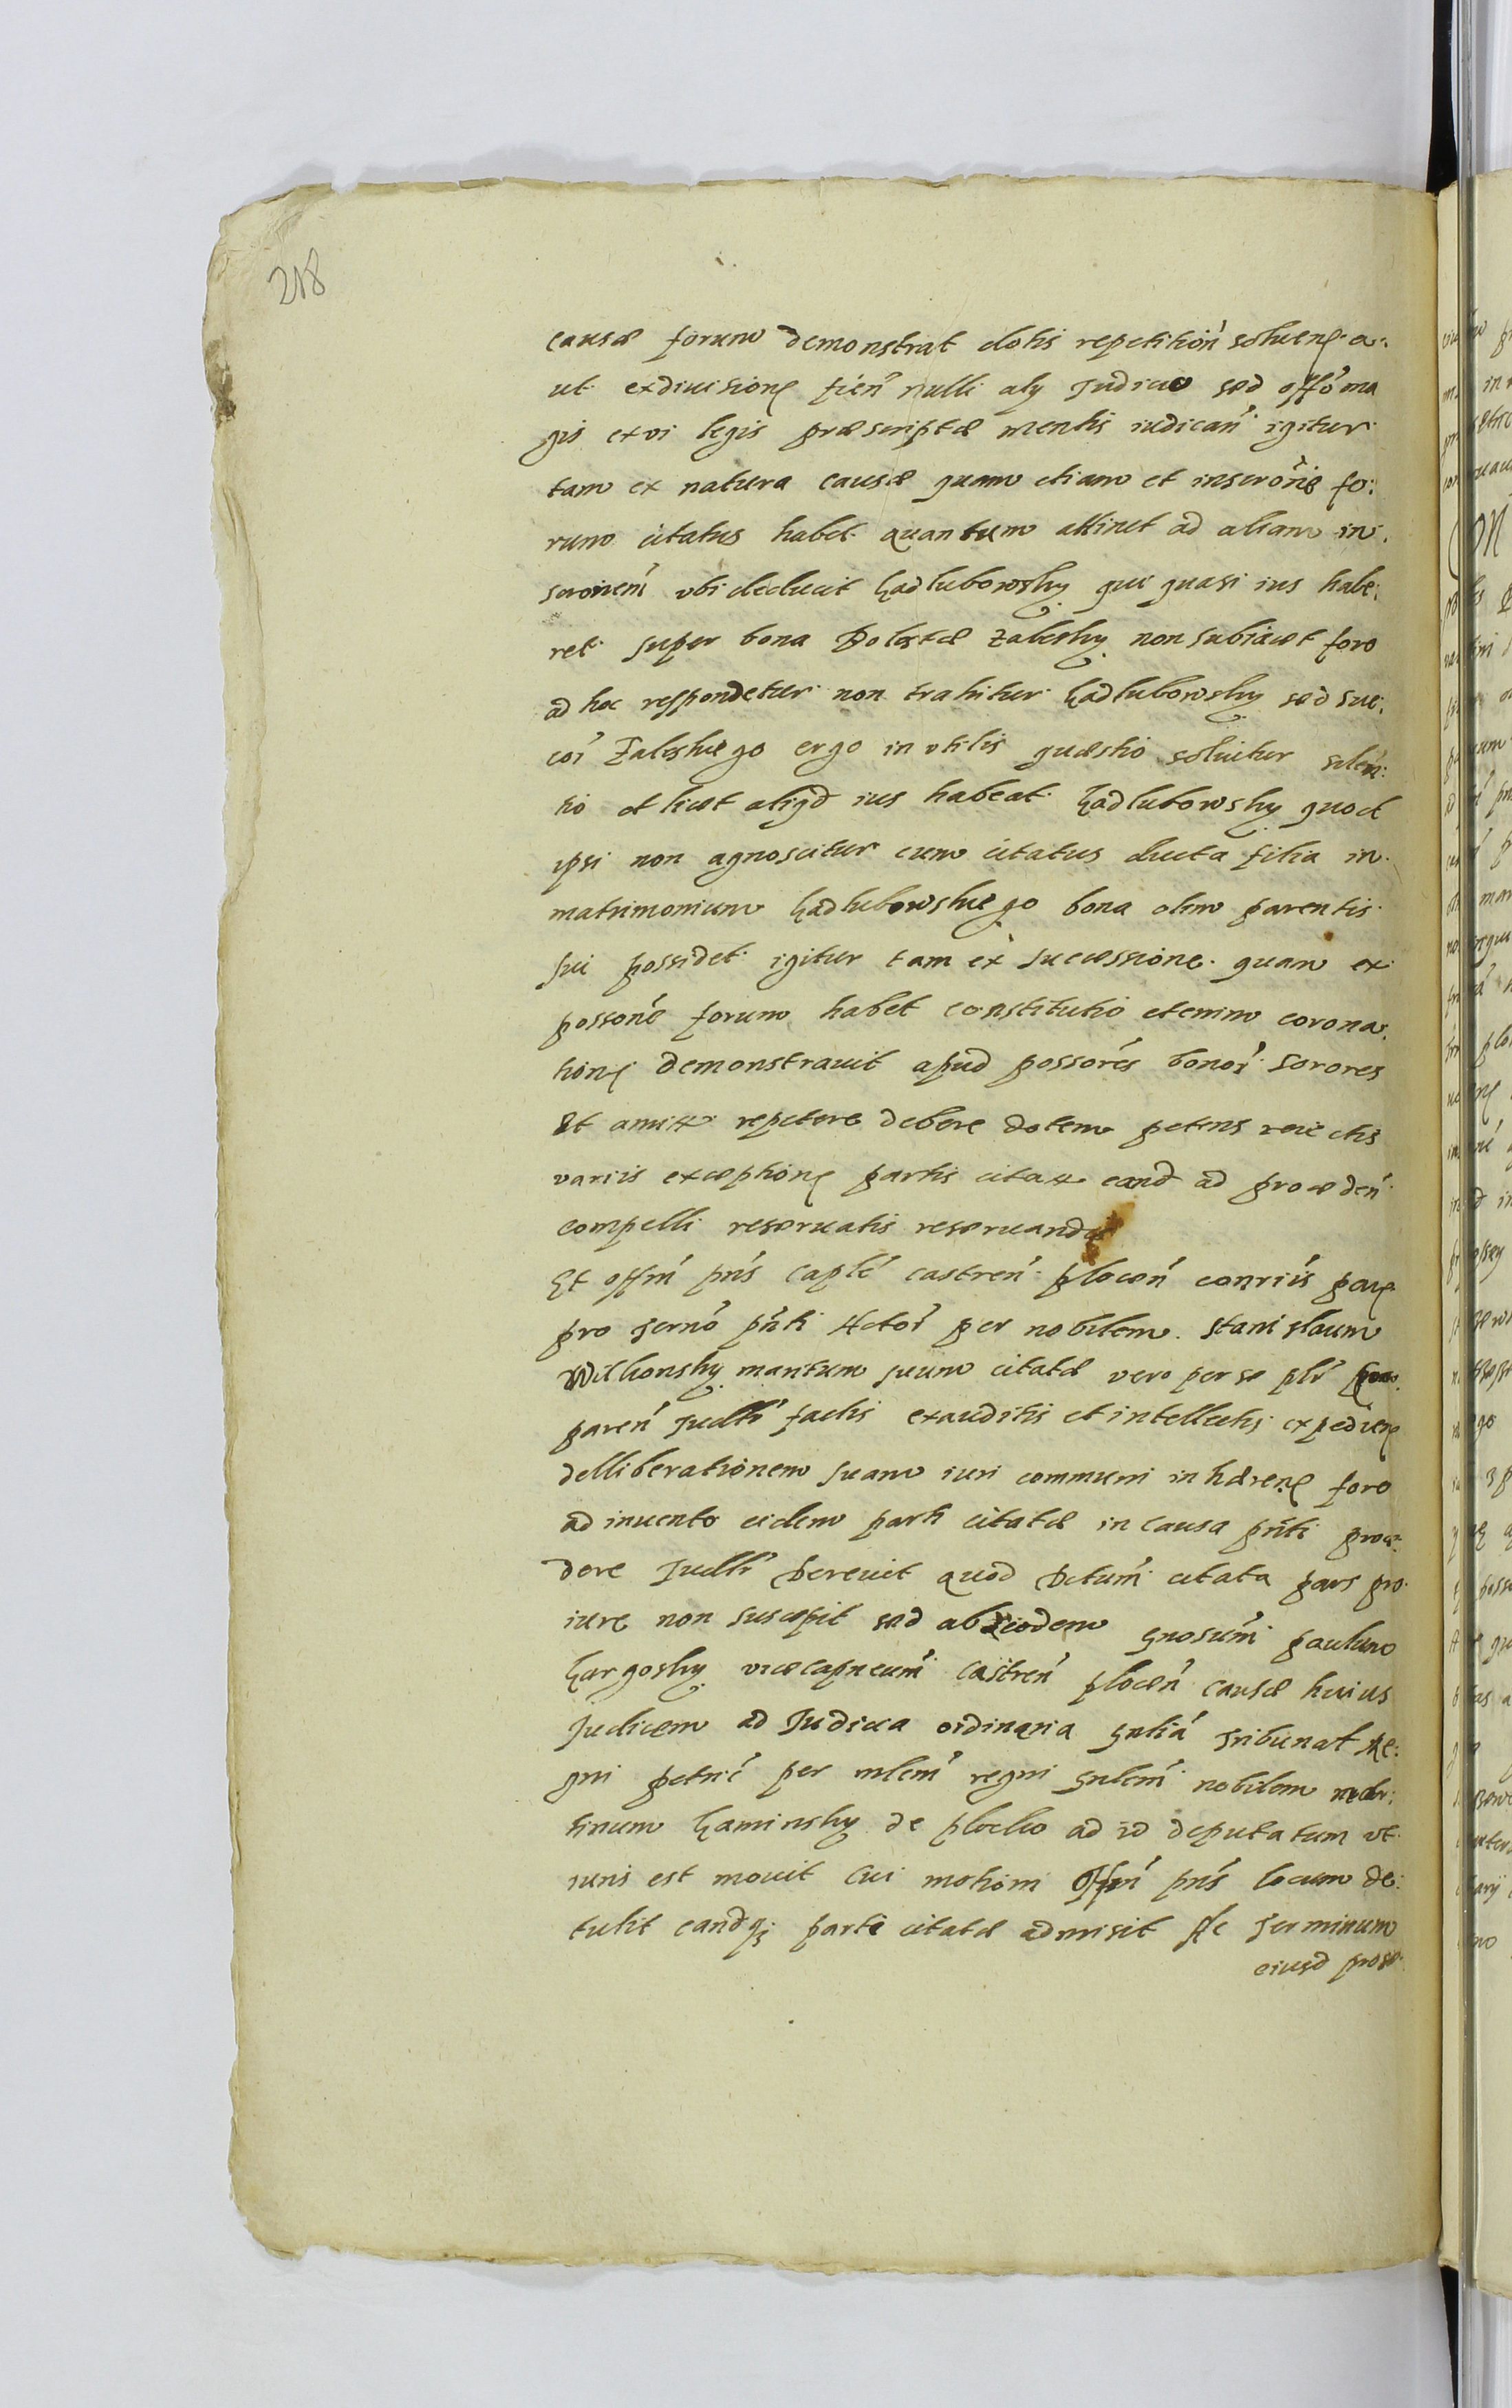 218
causæ forum demonstrat dotis repetitioń soluenꝭ a:
ut ex diuisionꝭ fień nulli aly Judicio sed offó ma
gis ex vi legis præscriptæ mentis iudicań igitur
tam ex natura causæ quam etiam et inscrönis fo:
rum citatus habet quantum attinet ad aliam in:
scronem̃ vbi deducit Kadlubowsky qui quasi ius habe:
ret super bona Dolestæ Zalesky non subiacet foro
ad hoc respondetur non trahitur Kadlubowsky sed suc:
coŕ Zaleskiego ergo in vtilis quæstio soluitur
tio et licet aliqd ius habeat Kadlubowsky quod
ipsi non agnoscitur cum citatus ducta filia in
matrimonium Kadlubowskiego bona olim parentis
sui possidet igitur tam ex successione quam ex
possońe forum habet constitutio etenim corona:
tionꝭ demonstrauit apud possorés bonoŕ sorores
et amitt repetere debere dotem petens reiectis
variis exceptionꝭ partis citatt eand ad proceden̄
compelli reseruatis reseruandis
Et offm̃ pns̃ caplé castreń plocen̄ conriis̃ parꝭ
pro Termó pńti Actoŕ per nobilem Stanislaum
Wilkonsky maritum suum citatæ vero per se plr̃
pareń Judlr̃ factis exauditis et intellectis expedienꝭ
delliberationem suam iuri communi inhærenꝭ foro
ad inuento eidem parti citatæ in causa pńti proce:
dere Judlr̃ Decreuit quod Dctum̃ citata pars pro
iure non suscepit sed ab eodem Gnosum̃ Paulum
Kargosky vicecapneum̃ castreń plocen̄ causæ huius
Judicem ad Judicia ordinaria Gnlia Tribunal Re:
gni petrić per mlem̃ regni gnlem̃ nobilem
tinum Kaminsky de plocko ad id deputatum vt
iuris est mouit Cui motioni Offm̃ pns̃ locum de:
tulit eandqꝫ parti citatæ admisit Ac Terminum
eiusd prose